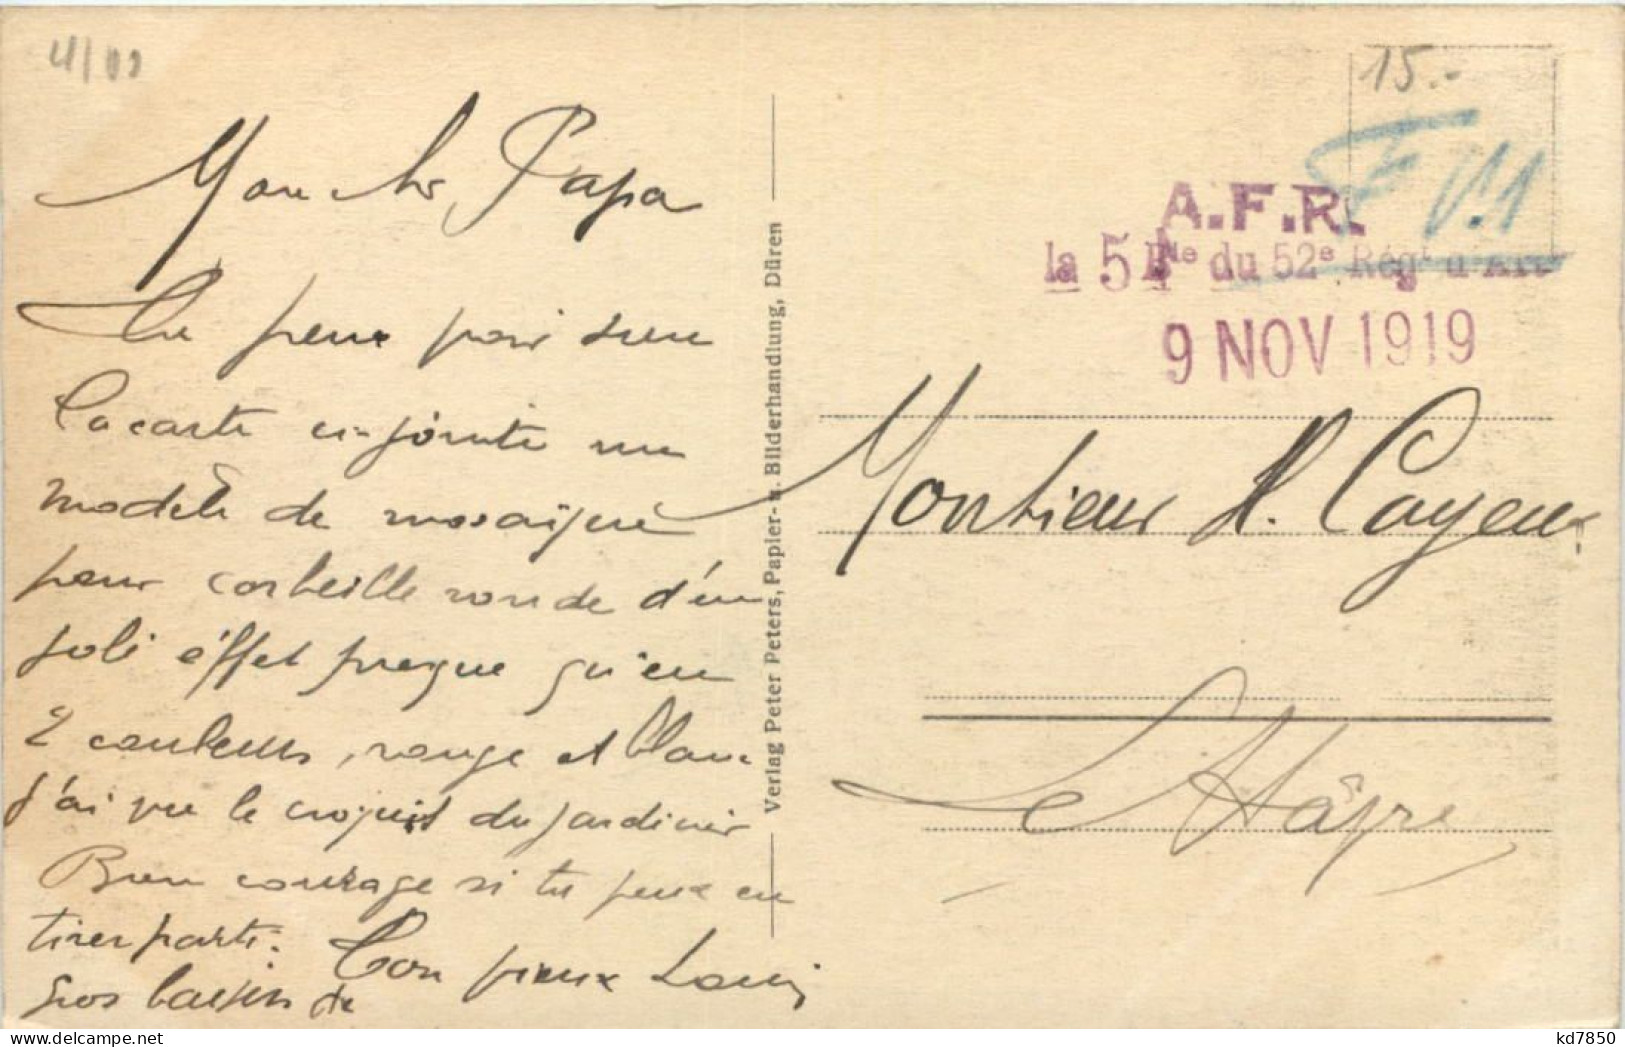 4/09
Mon cher Papa
Tu peux voir sur
la carte ci-jointe un
modèle de mosaïque
pour corbeille ronde d'un
joli éffet presque qu'en
2 couleurs, rouge et blanc
J'ai vu le croquis du jardinier
Bon courage si tu peux en
tirer parti.
Gros baisers de
Ton vieux Louis
Verlag Peter Peters, Papier- u. Bilderhandlung, Düren
15.-
A.F.R.
la 5 Bie du 52e Régt d'Art
9 NOV 1919
Monsieur H. Cayeux
Le Hâvre
kd7850